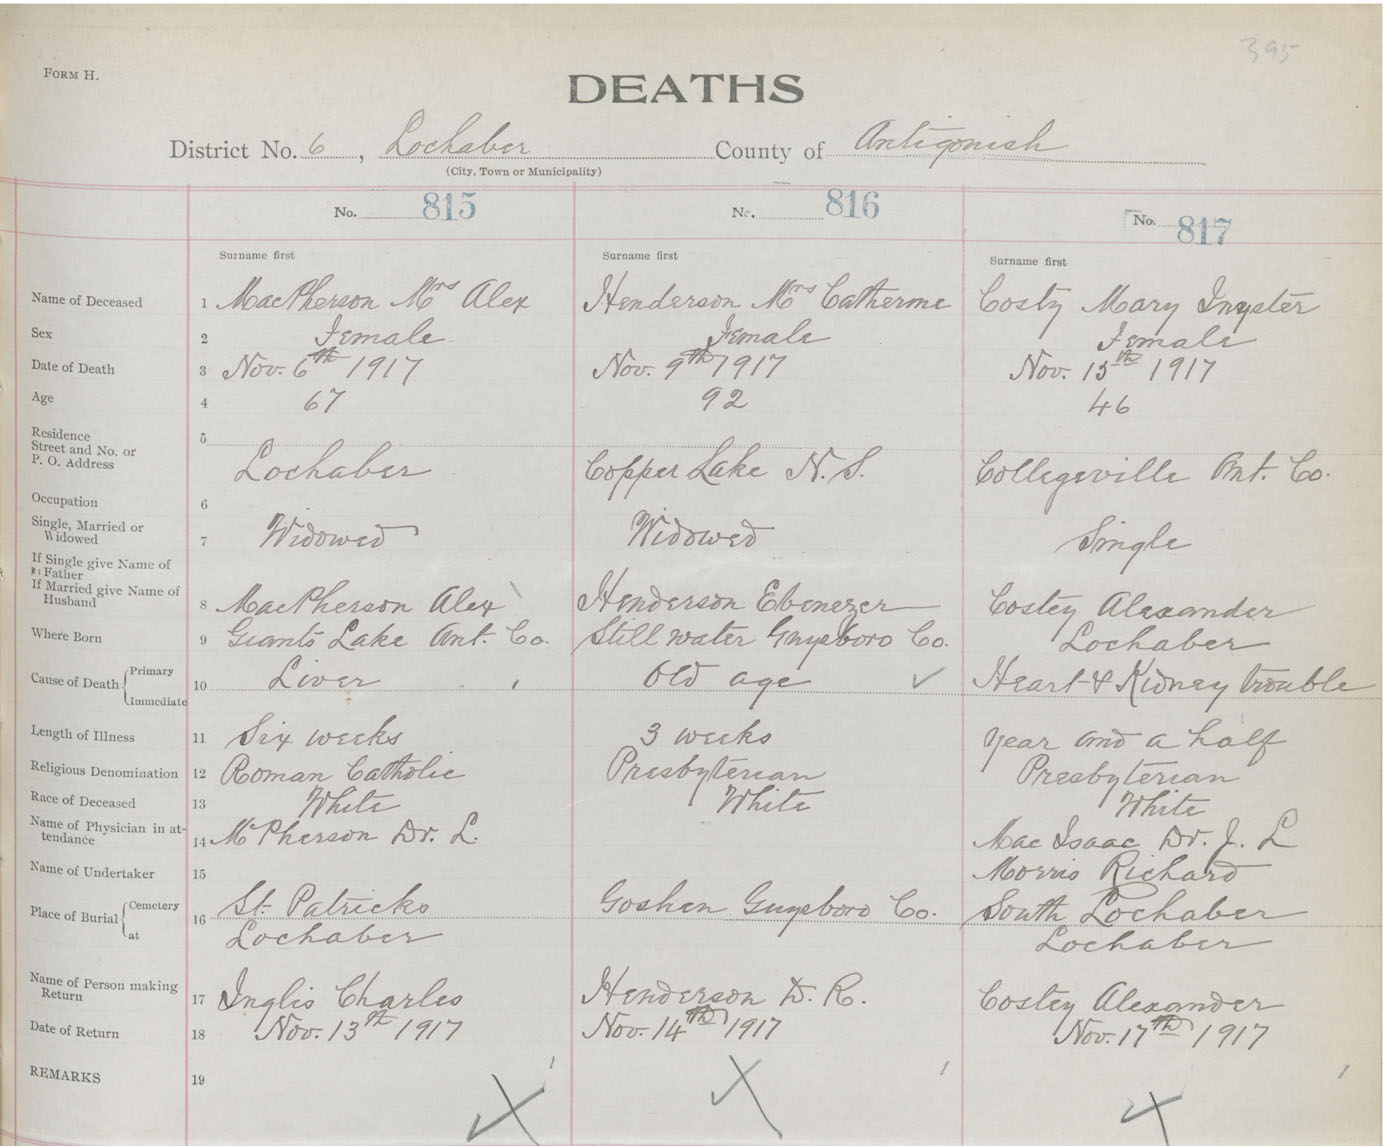 395
FORM H.
DEATHS
District No. 6, Lochaber County of Antigonish
(City, Town or Municipality)
No. 815 No. 816 No. 817
Surname first Surname first Surname first
Name of Deceased 1 MacPherson Mrs Alex Henderson Mrs Catherine Costy Mary
Sex 2 Female Female Female
Date of Death 3 Nov. 6th 1917 Nov. 9th 1917 Nov. 15th 1917
Age 4 67 92 46
Residence
Street and No. or
P. O. Address
5 Lochaber Copper Lake N. S. Collegeville Ant. Co.
Occupation 6
Single, Married or
Widowed
7 Widowed Widowed Single
If Single give Name of
Father
If Married give Name of
Husband
8 MacPherson Alex Henderson Ebenezer Costey Alexander
Where Born 9 Giants Lake Ant. Co. Still water Guysboro Co. Lochaber
Cause of Death { Primary
Immediate
10 Liver Old age ✓ Heart & Kidney trouble
Length of Illness 11 Six weeks 3 weeks year and a half
Religious Denomination 12 Roman Catholic Presbyterian Presbyterian
Race of Deceased 13 White White White
Name of Physician in at-
tendance
14 McPherson Dr. L. Mac Isaac Dr. J. L
Name of Undertaker 15 Morris Richard
Place of Burial { Cemetery
at
16 St. Patricks Goshen Guysboro Co. South Lochaber
Lochaber Lochaber
Name of Person making
Return
17 Inglis Charles Henderson D. R. Costey Alexander
Date of Return 18 Nov. 13th 1917 Nov. 14th 1917 Nov. 17th 1917
REMARKS 19